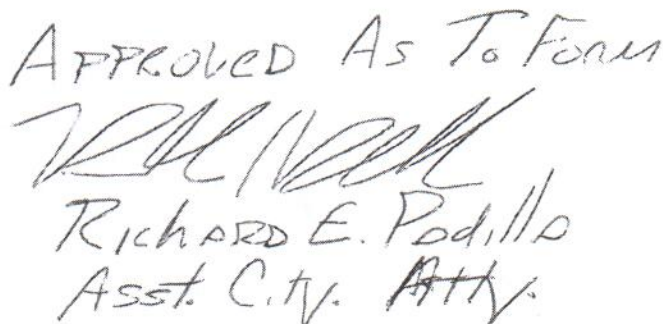 APPROVED As To Form
Richard E. Padilla
Asst. City. Atty.